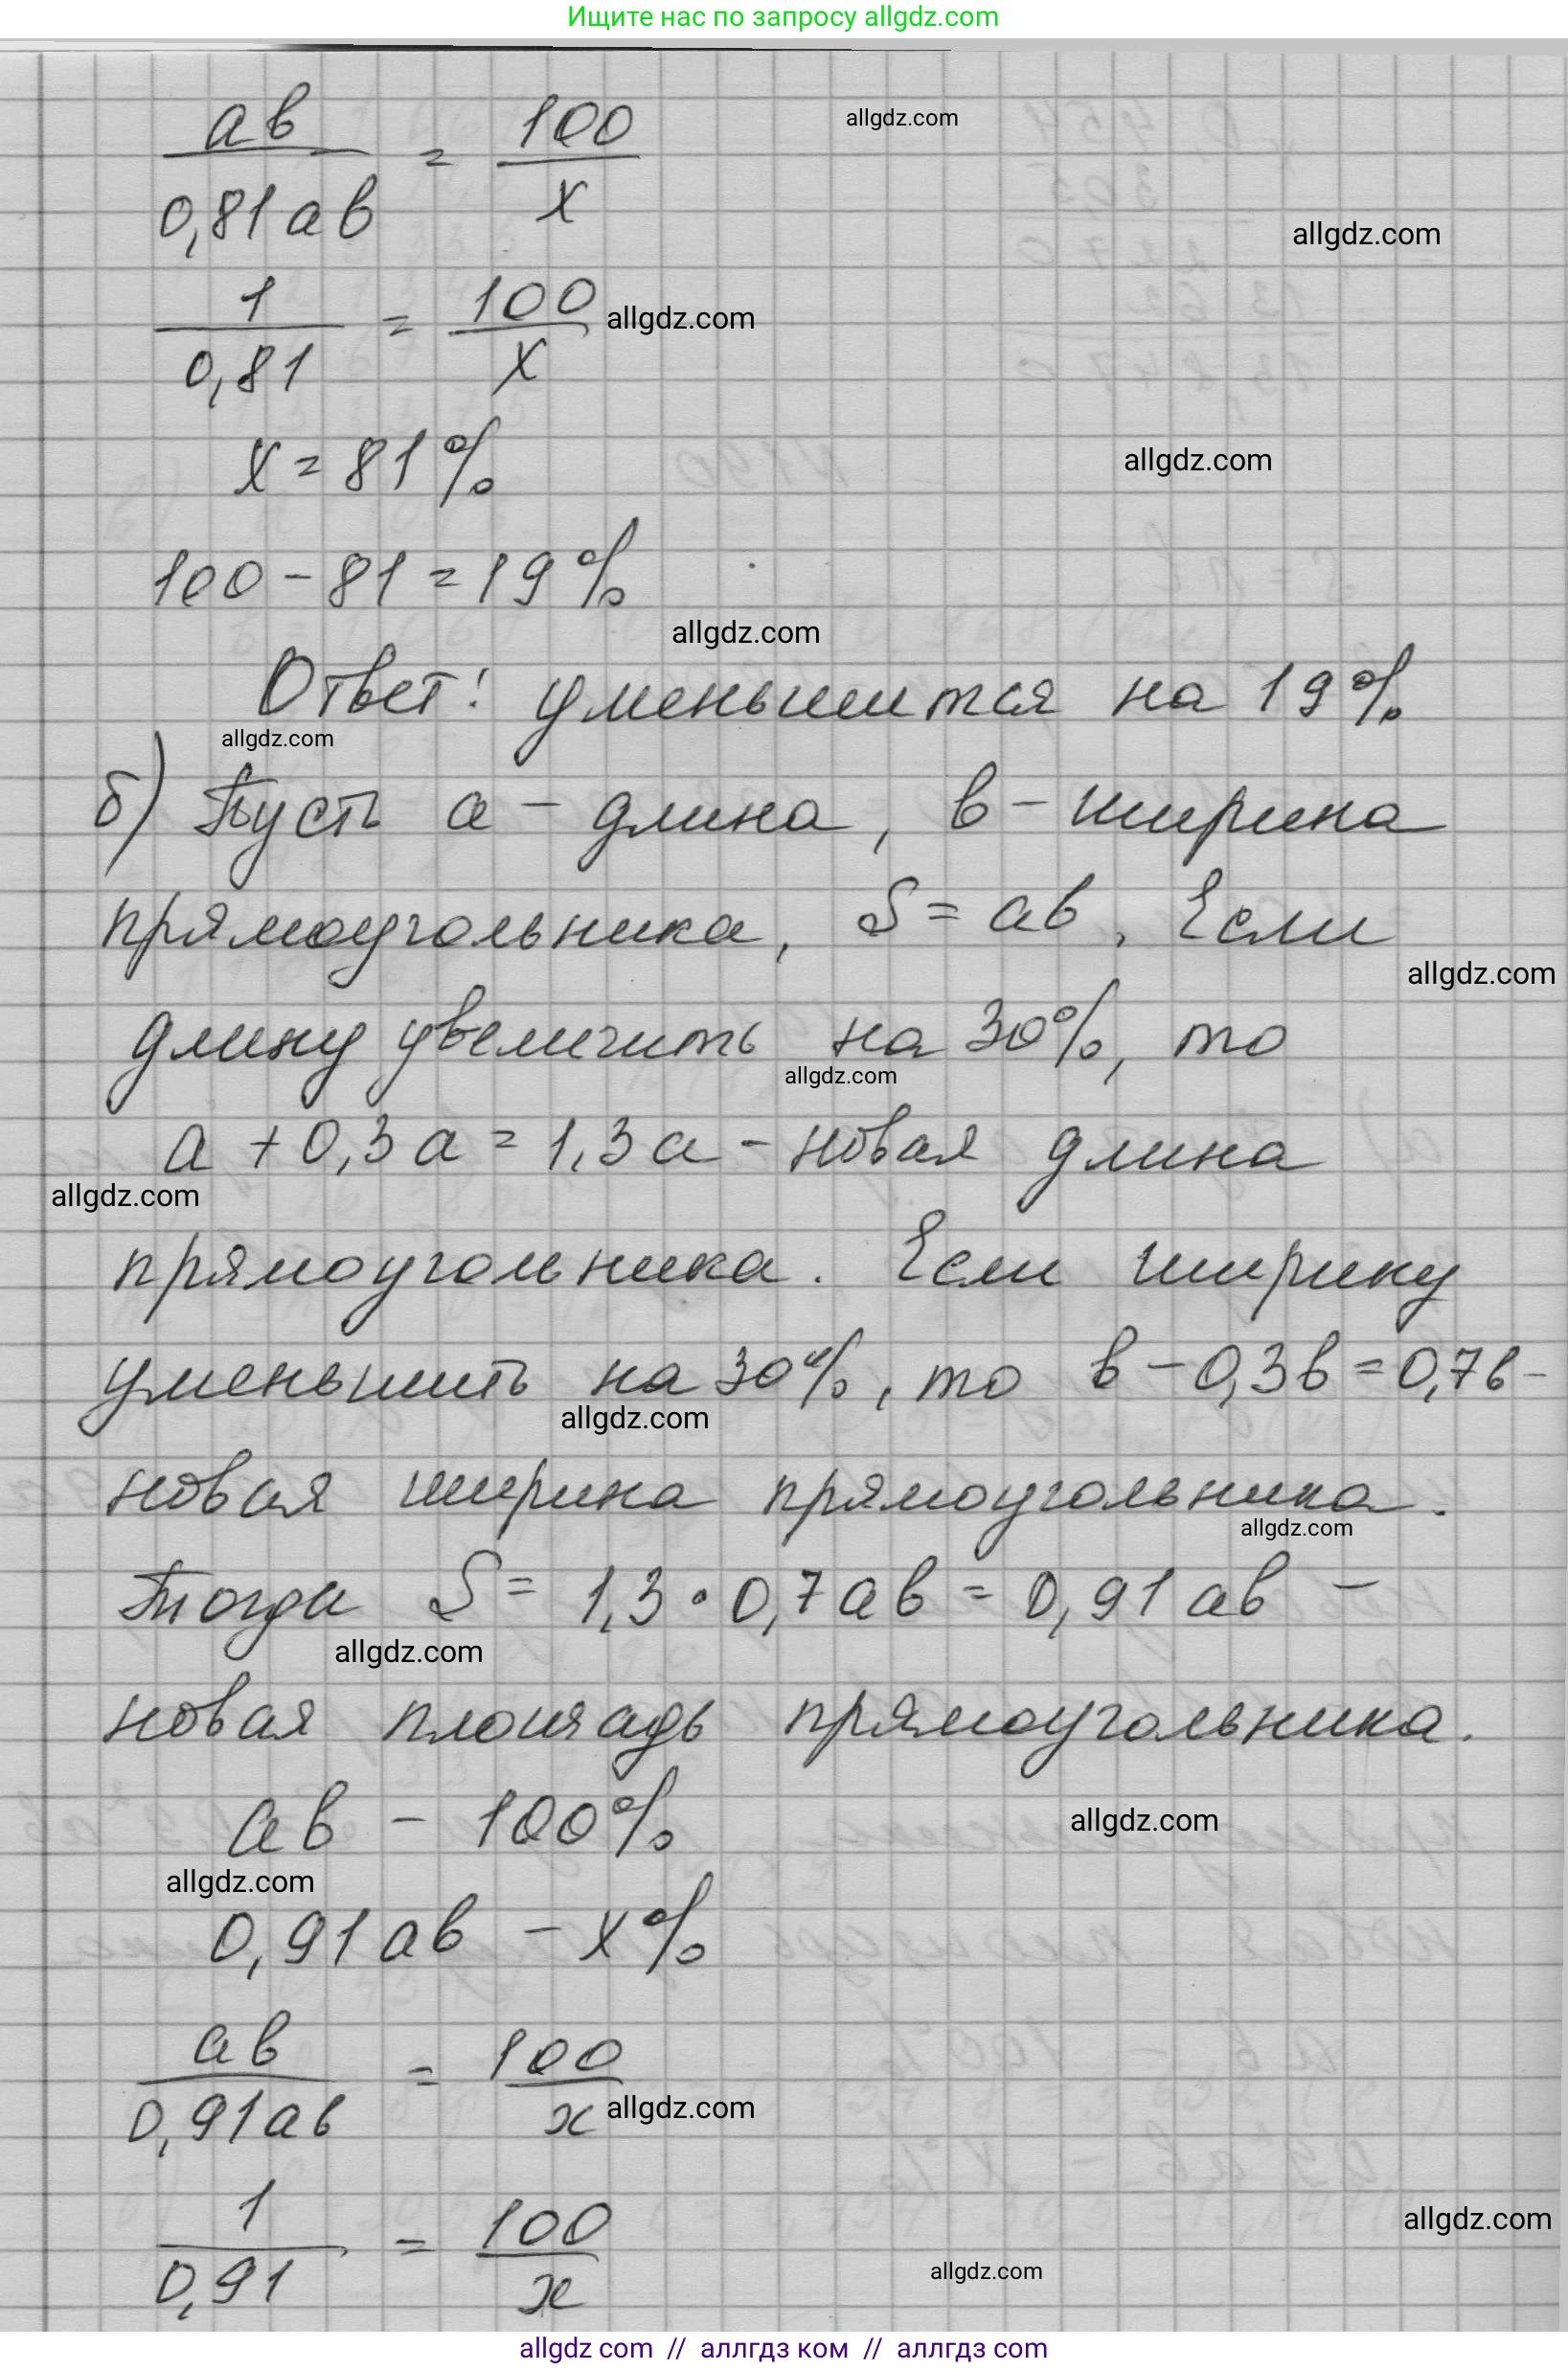 Ищите нас по запросу allgdz.com
ав / 0,81ав = 100 / х
allgdz.com
allgdz.com
1 / 0,81 = 100 / х
allgdz.com
х = 81 %
allgdz.com
100 - 81 = 19 %
allgdz.com
Ответ: уменьшится на 19 %
allgdz.com
б) Пусть а - длина, в - ширина
прямоугольника, S = ав. Если
allgdz.com
длину увеличить на 30%, то
allgdz.com
а + 0,3а = 1,3а - новая длина
allgdz.com
прямоугольника. Если ширину
уменьшить на 30%, то в - 0,3в = 0,7в -
allgdz.com
новая ширина прямоугольника.
allgdz.com
Тогда S = 1,3 · 0,7ав = 0,91ав -
allgdz.com
новая площадь прямоугольника.
ав - 100%
allgdz.com
allgdz.com
0,91ав - х%
ав / 0,91ав = 100 / х
allgdz.com
1 / 0,91 = 100 / х
allgdz.com
allgdz.com
allgdz com // аллгдз ком // аллгдз com